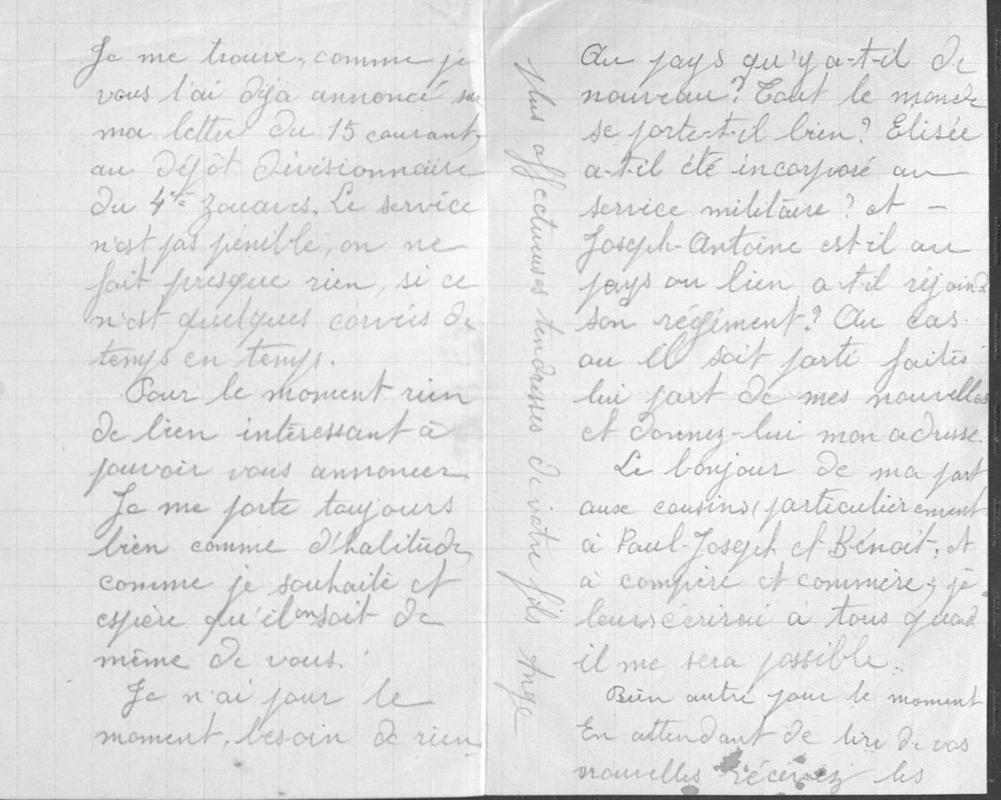 Je me trouve, comme je
vous l'ai déja annoncé sur
ma lettre du 15 courant,
au dépôt divisionnaire
du 4e zouaves. Le service
n'est pas pénible, on ne
fait presque rien, si ce
n'est quelques corvées de
temps en temps.
Pour le moment rien
de bien intéressant à
pouvoir vous annoncer
Je me porte toujours
bien comme d'habitude,
comme je souhaite et
espère qu'il en soit de
même de vous.
Je n'ai pour le
moment, besoin de rien
Au pays qu'y a-t-il de
nouveau? Tout le monde
se porte-t-il bien? Elisée
a-t-il été incorporé au
service militaire? et -
Joseph-Antoine est-il au
pays ou bien a-t-il réjoind
son régiment? Au cas
ou il soit parti faites
lui part de mes nouvelles
et donnez-lui mon adresse.
Le bonjour de ma part
aux cousins (particulièrement
à Paul-Joseph et Bénoit, et
à compère et commère; je
leurs écrirai à tous quad
il me sera possible.
Bien autre pour le moment
En attendant de lire de vos
nouvelles récévez les
plus affectueuses tendresses de votre fils Ange